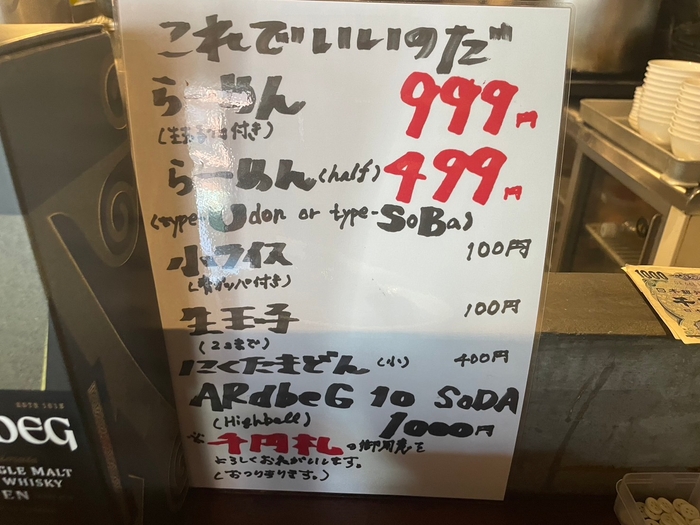 これでいいのだ
らーめん 999円
付き)
らーめん(half) 499円
(type-Udon or type-SoBa)
小ライス 100円
付き)
生玉子 100円
(2コまで)
にくたまどん(小) 400円
ARdbeG 10 SoDA
(Highball) 1000円
※千円札の御用意を
よろしくおねがいします。
(おつりあります。)
BEG
GLE MALT
WHISKY
EN
1000